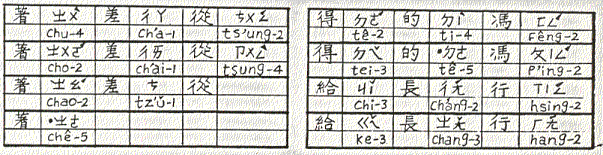 著 ㄓㄨˋ 差 ㄔㄚ 從 ㄘㄨㄥˊ
chu-4 ch'a-1 ts'ung-2
著 ㄓㄨㄛˊ 差 ㄔㄞ 從 ㄗㄨㄥˋ
cho-2 ch'ai-1 tsung-4
著 ㄓㄠˊ 差 ㄘ 從
chao-2 tz'ŭ-1
著 ˙ㄓㄜ
chê-5
得 ㄉㄜˊ 的 ㄉㄧˋ 馮 ㄈㄥˊ
tê-2 ti-4 fêng-2
得 ㄉㄟˇ 的 ˙ㄉㄜ 馮 ㄆㄧㄥˊ
tei-3 tê-5 p'ing-2
給 ㄐㄧˇ 長 ㄔㄤˊ 行 ㄒㄧㄥˊ
chi-3 ch'ang-2 hsing-2
給 ㄍㄟˇ 長 ㄓㄤˇ 行 ㄏㄤˊ
ke-3 chang-3 hang-2